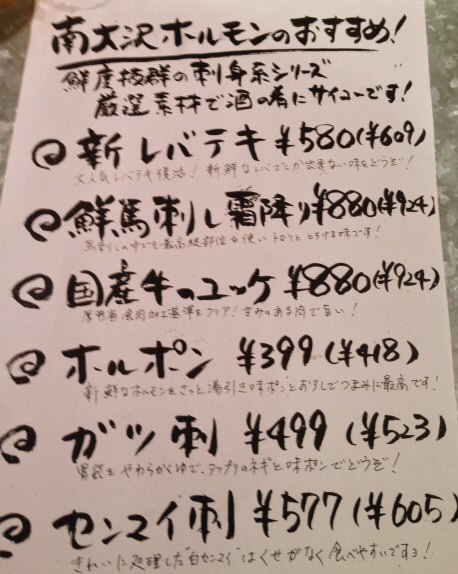 南大沢ホルモンのおすすめ!
鮮度抜群の刺身系シリーズ
厳選素材で酒の肴にサイコーです!
新レバテキ ¥580(¥609)
大人気レバテキ復活! 新鮮なレバでしか出来ない味をどうぞ!
鮮馬刺し霜降り¥880(¥924)
馬刺しの中でも最高級部位を使い トロリととろける味です!
国産牛のユッケ ¥880(¥924)
厚労省食肉加工基準をクリア! 甘みのある肉で旨い!
ホルポン ¥399(¥418)
新鮮なホルモンをさっと湯引き味ポンとおろしでつまみに最高です!
ガツ刺 ¥499(¥523)
胃袋をやわらかくゆで、タップリのネギと味ポンでどうぞ!
センマイ刺 ¥577(¥605)
きれいに処理した"白センマイ"はくせがなく食べやすいですヨ!